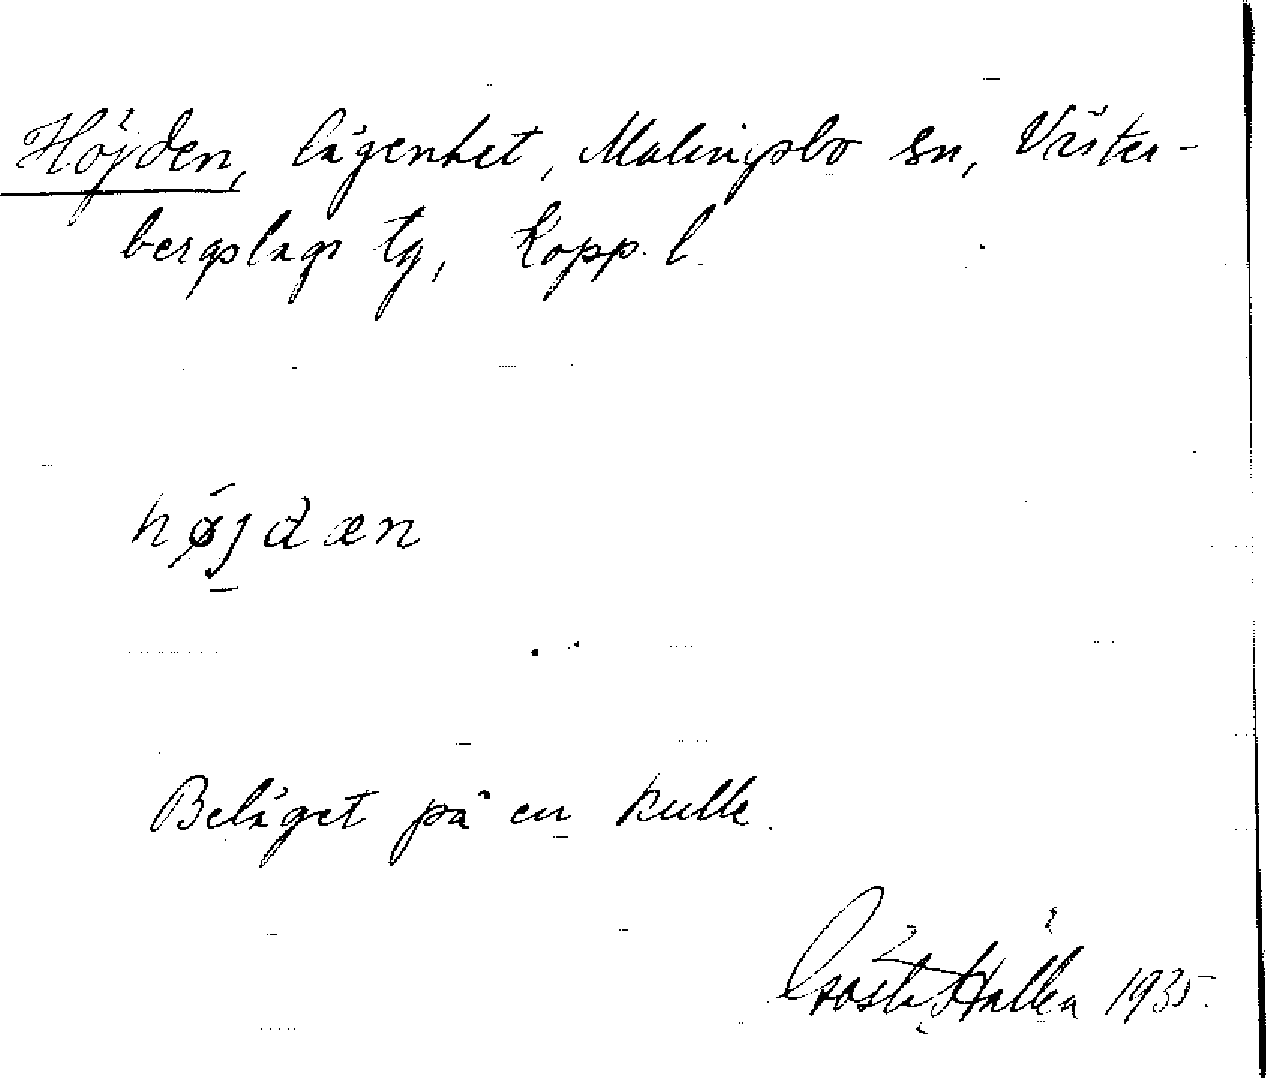 Höjden, lägenhet, Malingsbo sn, Väster-
bergslags tg, Kopp. l.
hǿj̠dæn
Beläget på en kulle.
Gösta Hallén 1935.